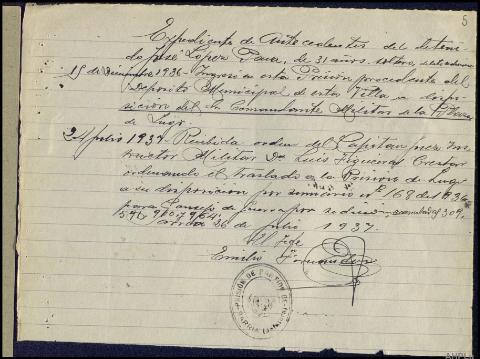 5
Expediente de Antecedentes del deteni-
do José López Pava, de 31 años. soltero,
15 de Diciembre 1936- Ingresó en esta Prisión procedente del
Depósito Municipal de esta Villa a dispo-
sición del Sr Comandante Militar de la Plaza
de Lugo.
24 julio 1937- Recibida orden del Capitan juez Ins-
tructor Militar Dn Luis Figueiras Crestar
ordenando el traslado a la Prisión de Lugo
a su disposición por sumario nº 168 del 1936
para Consejo de Guerra por acumulados 309,
Sarria 26 de julio 1937.
El Jefe
Emilio
PRISIÓN DE PARTIDO DE
SARRIA